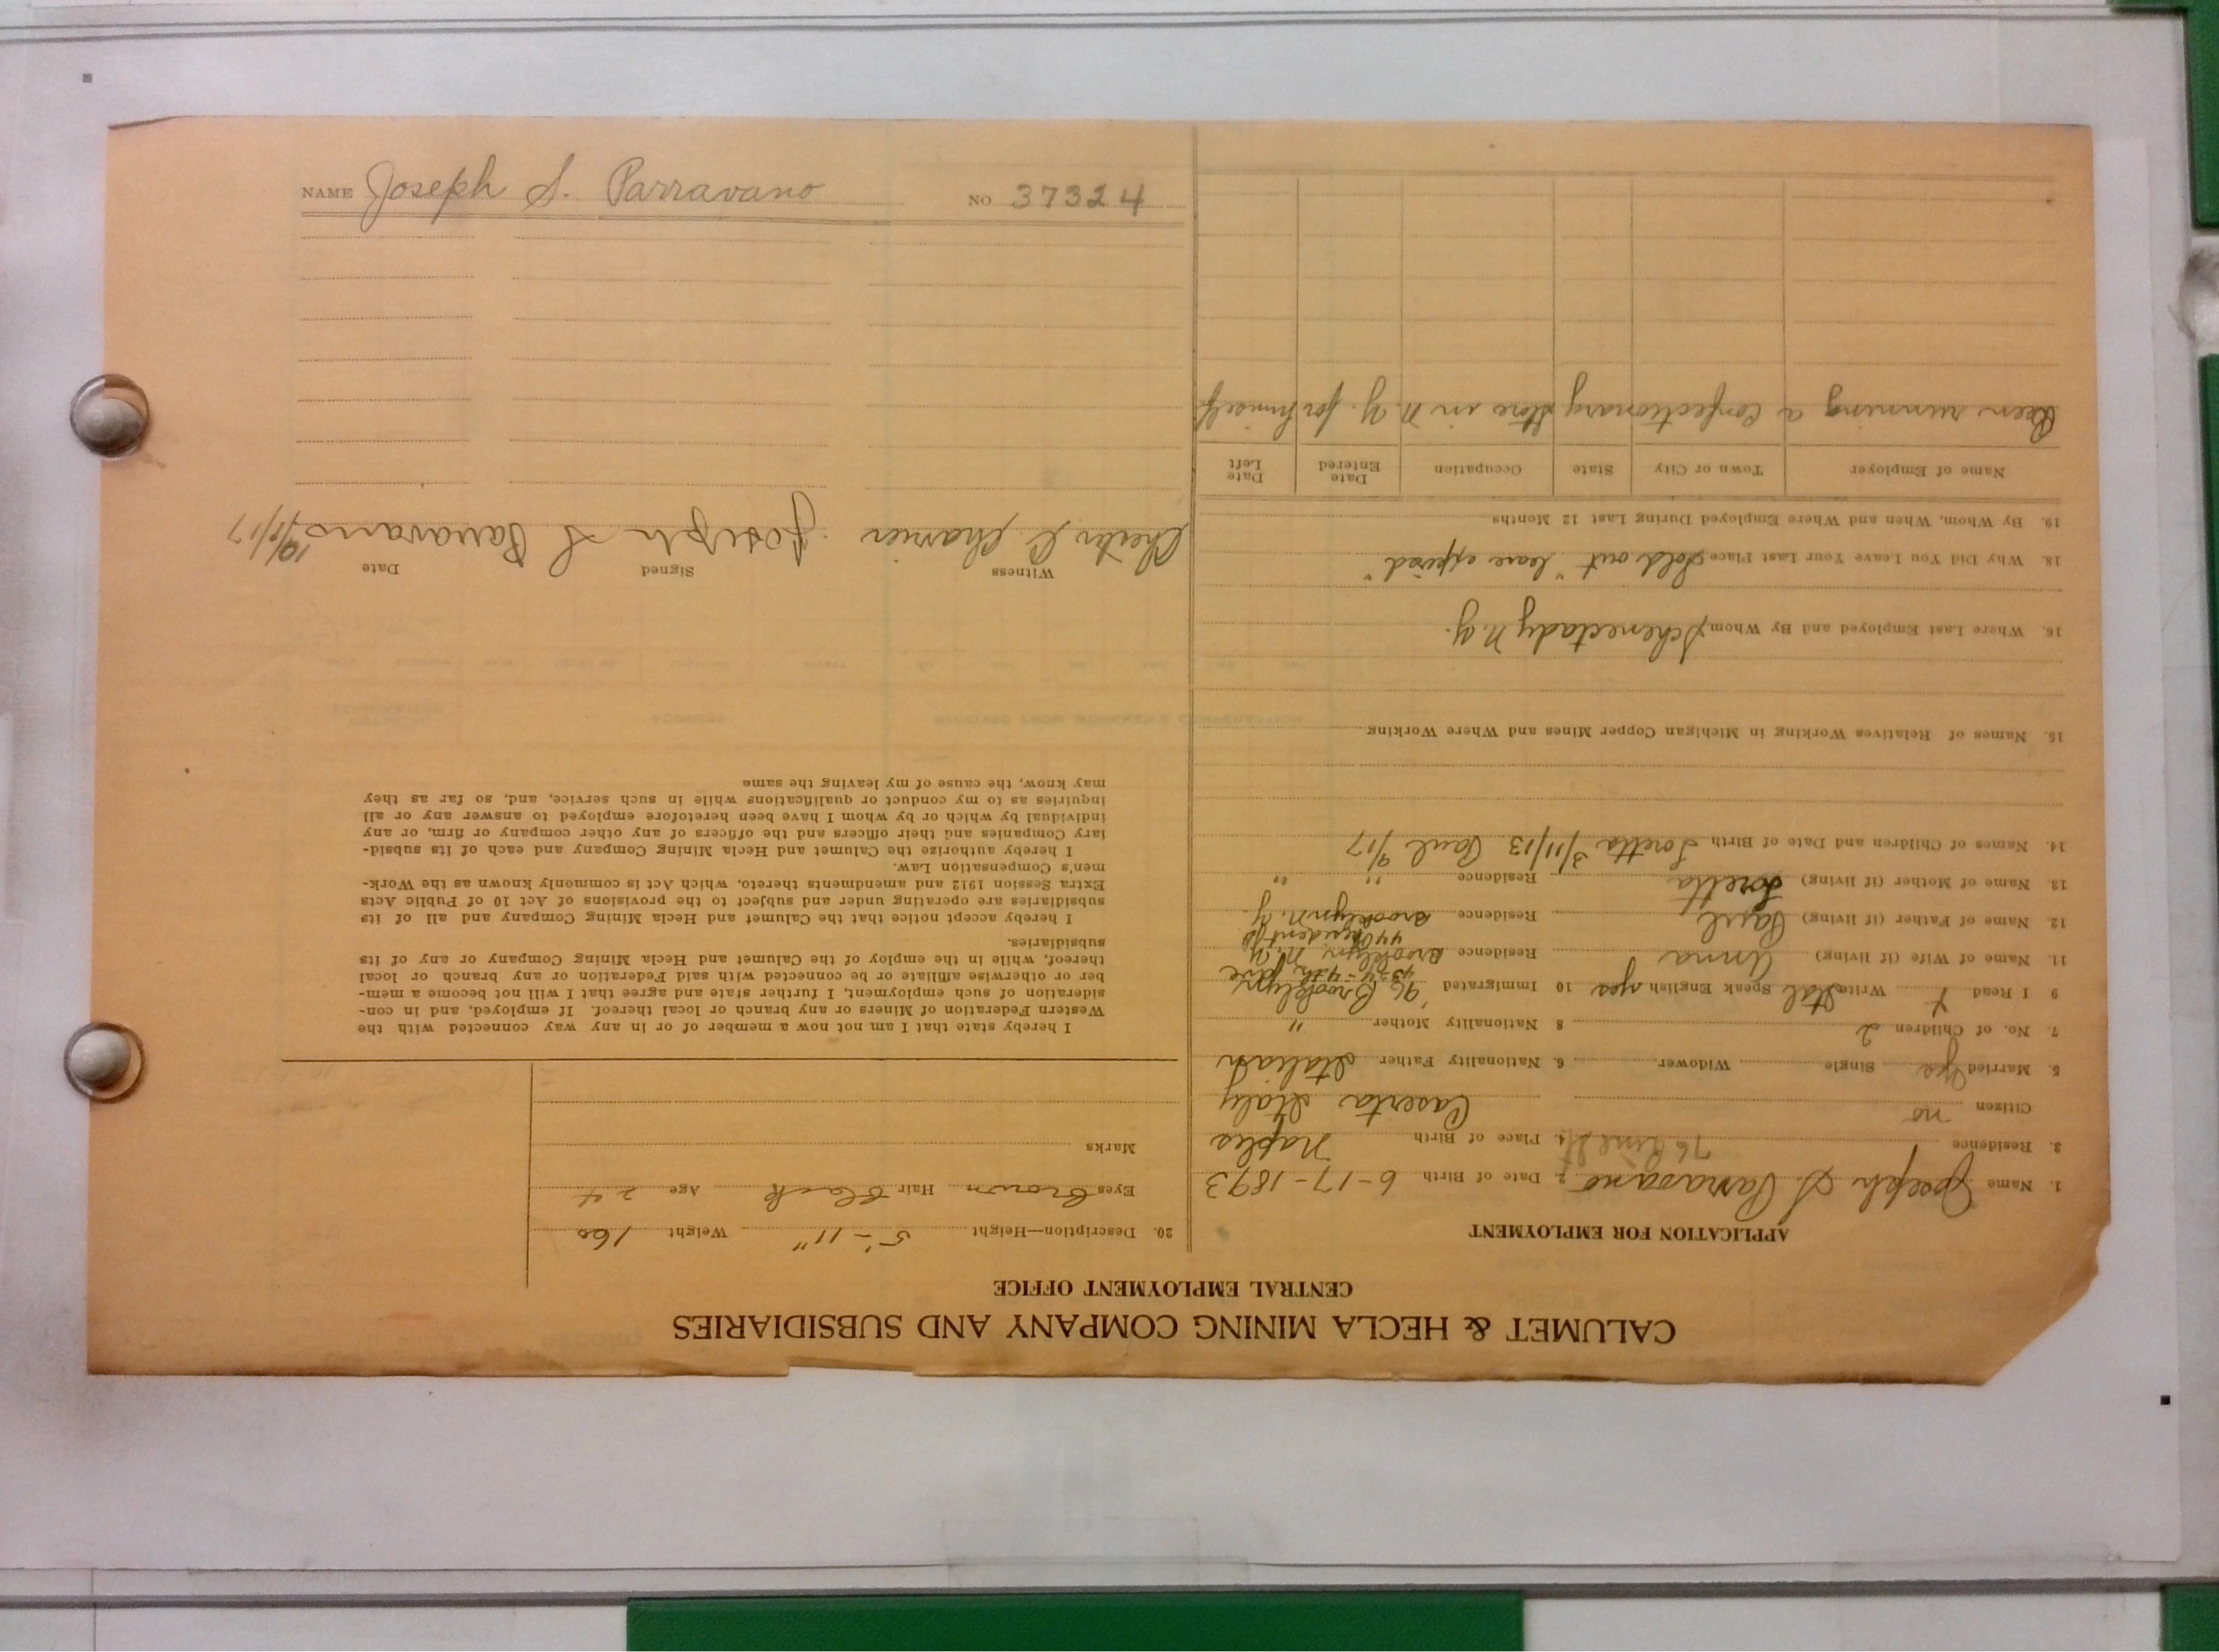 CALUMET & HECLA MINING COMPANY AND SUBSIDIARIES
CENTRAL EMPLOYMENT OFFICE
APPLICATION FOR EMPLOYMENT
1. Name Joseph S Parravano 2. Date of Birth 6-17-1893
3. Residence 76 Pine St 4. Place of Birth Naples
Citizen no Caserta Italy
5. Married yes Single Widower 6. Nationality Father Italian
7. No. of Children 2 8 Nationality Mother "
9 I Read X Write Ital Speak English yes 10 Immigrated '96 Brooklyn
43-4-4th Ave
11. Name of Wife (if living) Anna Residence Brooklyn N.Y.
440 President St
12. Name of Father (if living) Paul Residence Brooklyn N.Y.
13. Name of Mother (if living) Loretta Residence " "
14. Names of Children and Date of Birth Loretta 3/11/13 Paul 9/17
15. Names of Relatives Working in Michigan Copper Mines and Where Working
16. Where Last Employed and By Whom Schenectady N.Y.
18. Why Did You Leave Your Last Place Sold out "lease expired"
19. By Whom, When and Where Employed During Last 12 Months
Name of Employer Town or City State Occupation Date Entered Date Left
Been running a Confectionary Store in N.Y. for himself
20. Description—Height 5'-11" Weight 160
Eyes Brown Hair Black Age 24
Marks
I hereby state that I am not now a member of or in any way connected with the
Western Federation of Miners or any branch or local thereof. If employed, and in con-
sideration of such employment, I further state and agree that I will not become a mem-
ber or otherwise affiliate or be connected with said Federation or any branch or local
thereof, while in the employ of the Calumet and Hecla Mining Company or any of its
subsidiaries.
I hereby accept notice that the Calumet and Hecla Mining Company and all of its
subsidiaries are operating under and subject to the provisions of Act 10 of Public Acts
Extra Session 1912 and amendments thereto, which Act is commonly known as the Work-
men's Compensation Law.
I hereby authorize the Calumet and Hecla Mining Company and each of its subsid-
iary Companies and their officers and the officers of any other company or firm, or any
individual by which or by whom I have been heretofore employed to answer any or all
inquiries as to my conduct or qualifications while in such service, and, so far as they
may know, the cause of my leaving the same
Witness Signed Date
Chester C. Joseph S Parravano 10/1/17
NAME Joseph S. Parravano NO 37324